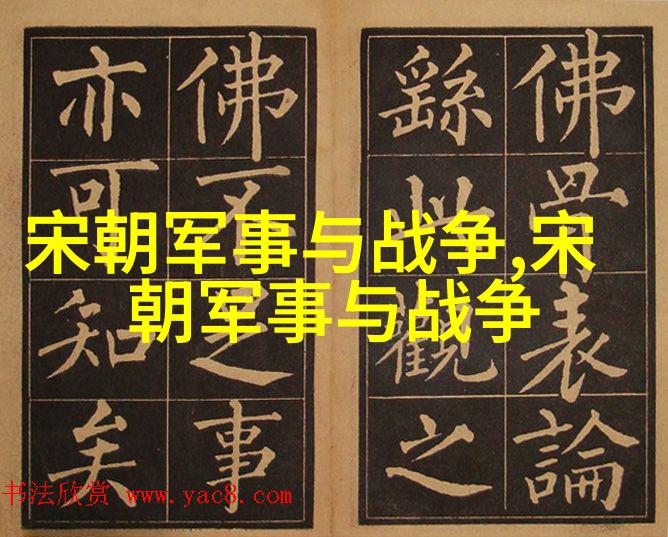 佛骨表論
繇此觀之
佛不足事
亦可知矣
宋朝军事与战争,宋
朝军事与战争
书法欣赏 www.yac8.com